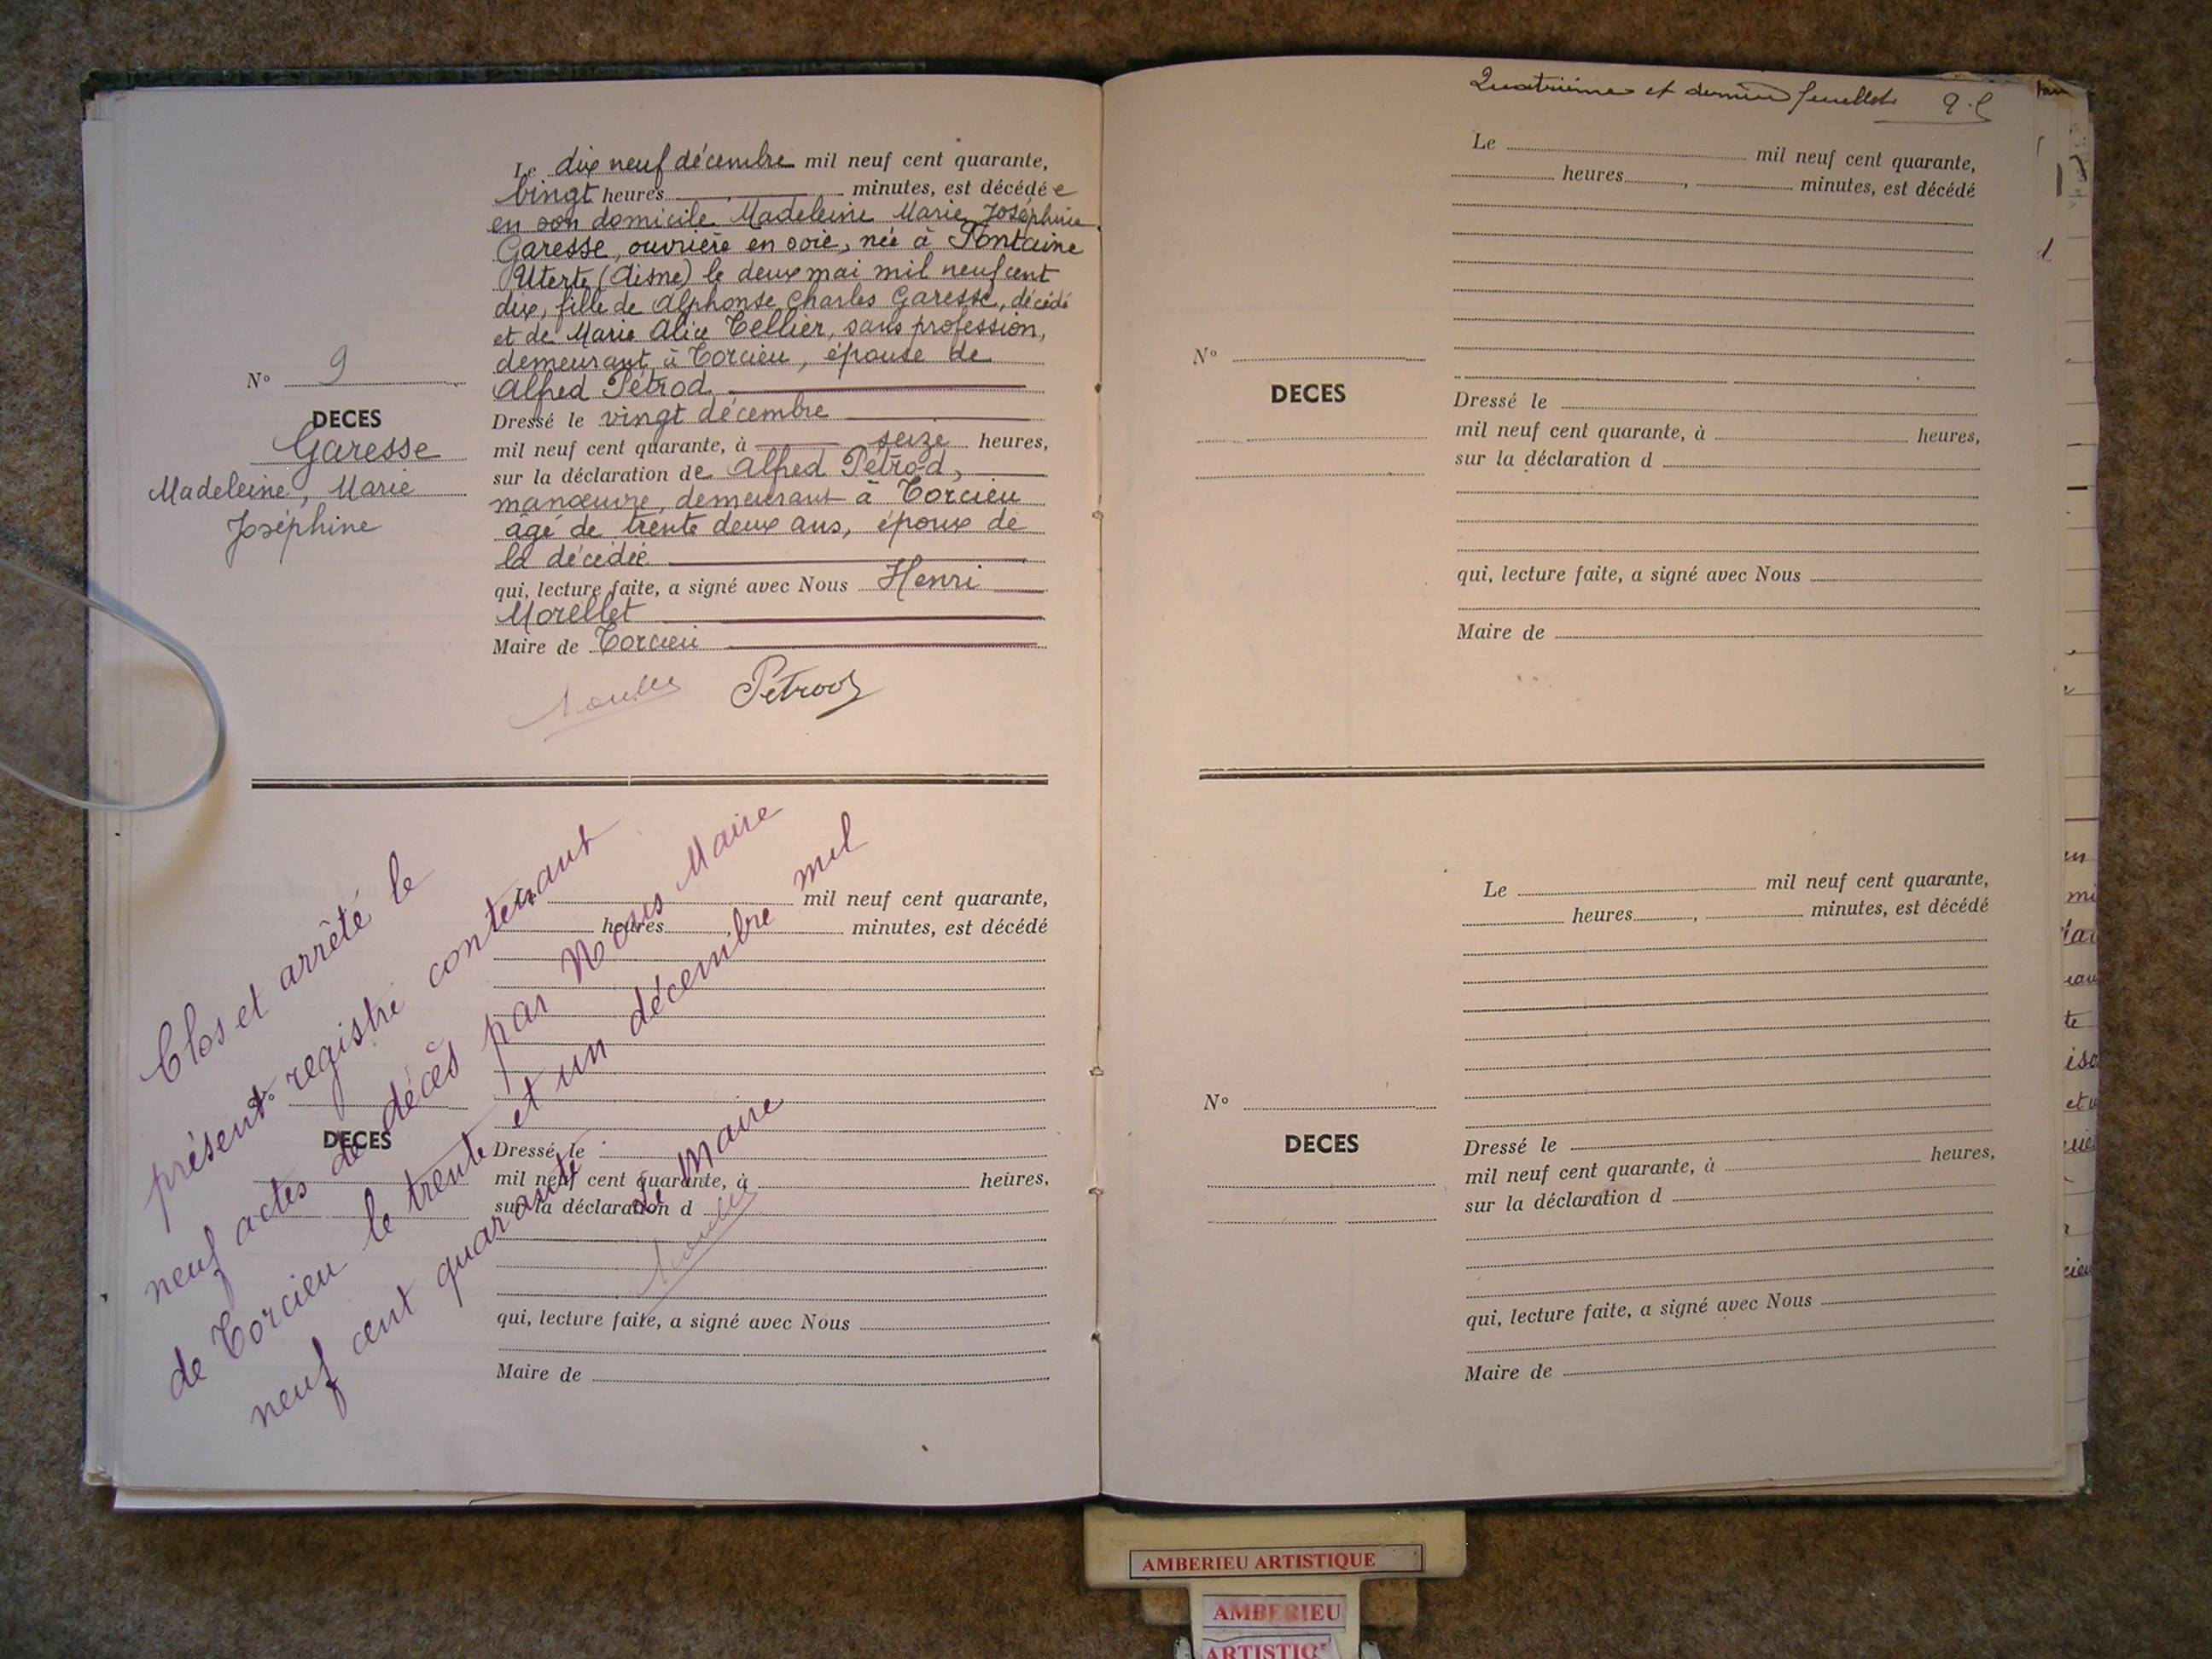 Le dix neuf décembre mil neuf cent quarante,
vingt heures, minutes, est décédée
en son domicile Madeleine Marie Joséphine
Garesse, ouvrière en soie, née à Fontaine
Uterte (Aisne) le deux mai mil neuf cent
dix, fille de Alphonse Charles Garesse, décédé
et de Marie Alice Tellier, sans profession,
demeurant à Torcieu, épouse de
Alfred Pétrod
Nº 9
DECES
Garesse
Madeleine, Marie
Joséphine
Dressé le vingt décembre
mil neuf cent quarante, à seize heures,
sur la déclaration de Alfred Pétrod,
manœuvre, demeurant à Torcieu
âgé de trente deux ans, époux de
la décédée
qui, lecture faite, a signé avec Nous Henri
Morellet
Maire de Torcieu
Pétrod
Clos et arrêté le
présent registre contenant
neuf actes de décès par Nous Maire
de Torcieu le trente et un décembre mil
neuf cent quarante
Le Maire
Le mil neuf cent quarante,
heures, minutes, est décédé
Nº
DECES
Dressé le
mil neuf cent quarante, à heures,
sur la déclaration d
qui, lecture faite, a signé avec Nous
Maire de
Quatrième et dernier feuillet
Le mil neuf cent quarante,
heures, minutes, est décédé
Nº
DECES
Dressé le
mil neuf cent quarante, à heures,
sur la déclaration d
qui, lecture faite, a signé avec Nous
Maire de
Le mil neuf cent quarante,
heures, minutes, est décédé
Nº
DECES
Dressé le
mil neuf cent quarante, à heures,
sur la déclaration d
qui, lecture faite, a signé avec Nous
Maire de
AMBERIEU ARTISTIQUE
AMBERIEU
ARTISTIQ